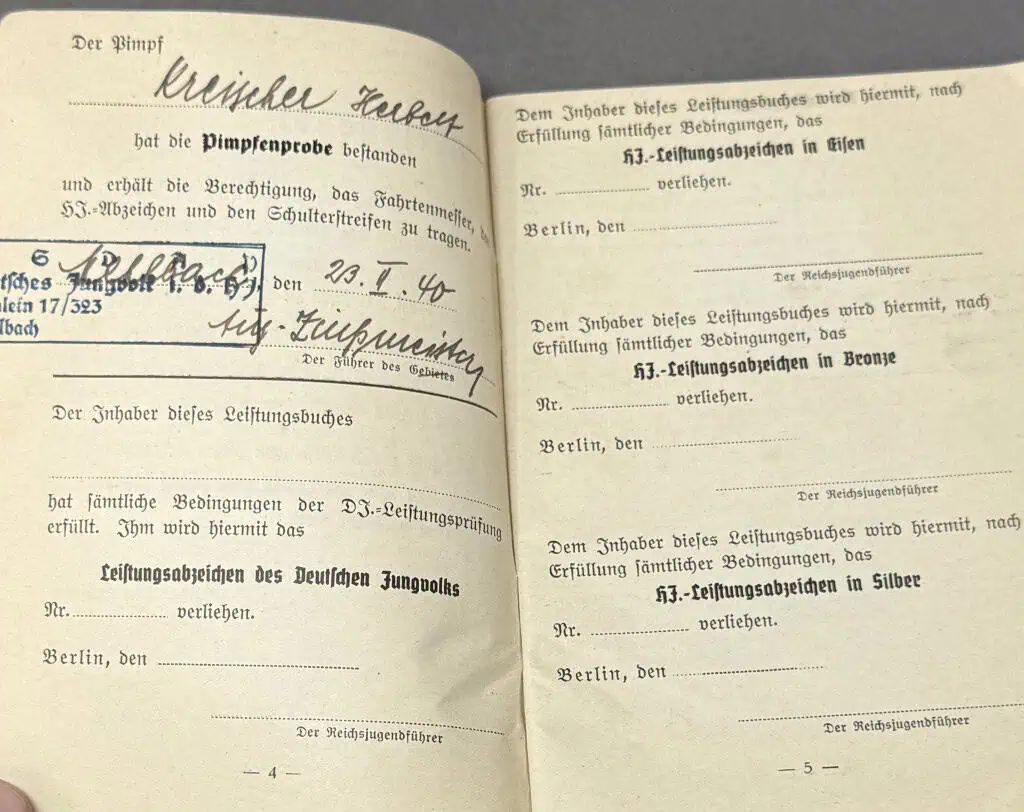 Der Pimpf
Kreischer Herbert
hat die Pimpfenprobe bestanden
und erhält die Berechtigung, das Fahrtenmesser, 
HJ.-Abzeichen und den Schulterstreifen zu tragen.
tsches Jungvolk i. d. HJ.
lein 17/323
lbach
den 23. II. 40
Der Führer des Gebietes
Der Inhaber dieses Leistungsbuches
hat sämtliche Bedingungen der DJ.-Leistungsprüfung
erfüllt. Ihm wird hiermit das
Leistungsabzeichen des Deutschen Jungvolks
Nr. verliehen.
Berlin, den
Der Reichsjugendführer
— 4 —
Dem Inhaber dieses Leistungsbuches wird hiermit, nach
Erfüllung sämtlicher Bedingungen, das
HJ.-Leistungsabzeichen in Eisen
Nr. verliehen.
Berlin, den
Der Reichsjugendführer
Dem Inhaber dieses Leistungsbuches wird hiermit, nach
Erfüllung sämtlicher Bedingungen, das
HJ.-Leistungsabzeichen in Bronze
Nr. verliehen.
Berlin, den
Der Reichsjugendführer
Dem Inhaber dieses Leistungsbuches wird hiermit, nach
Erfüllung sämtlicher Bedingungen, das
HJ.-Leistungsabzeichen in Silber
Nr. verliehen.
Berlin, den
Der Reichsjugendführer
— 5 —